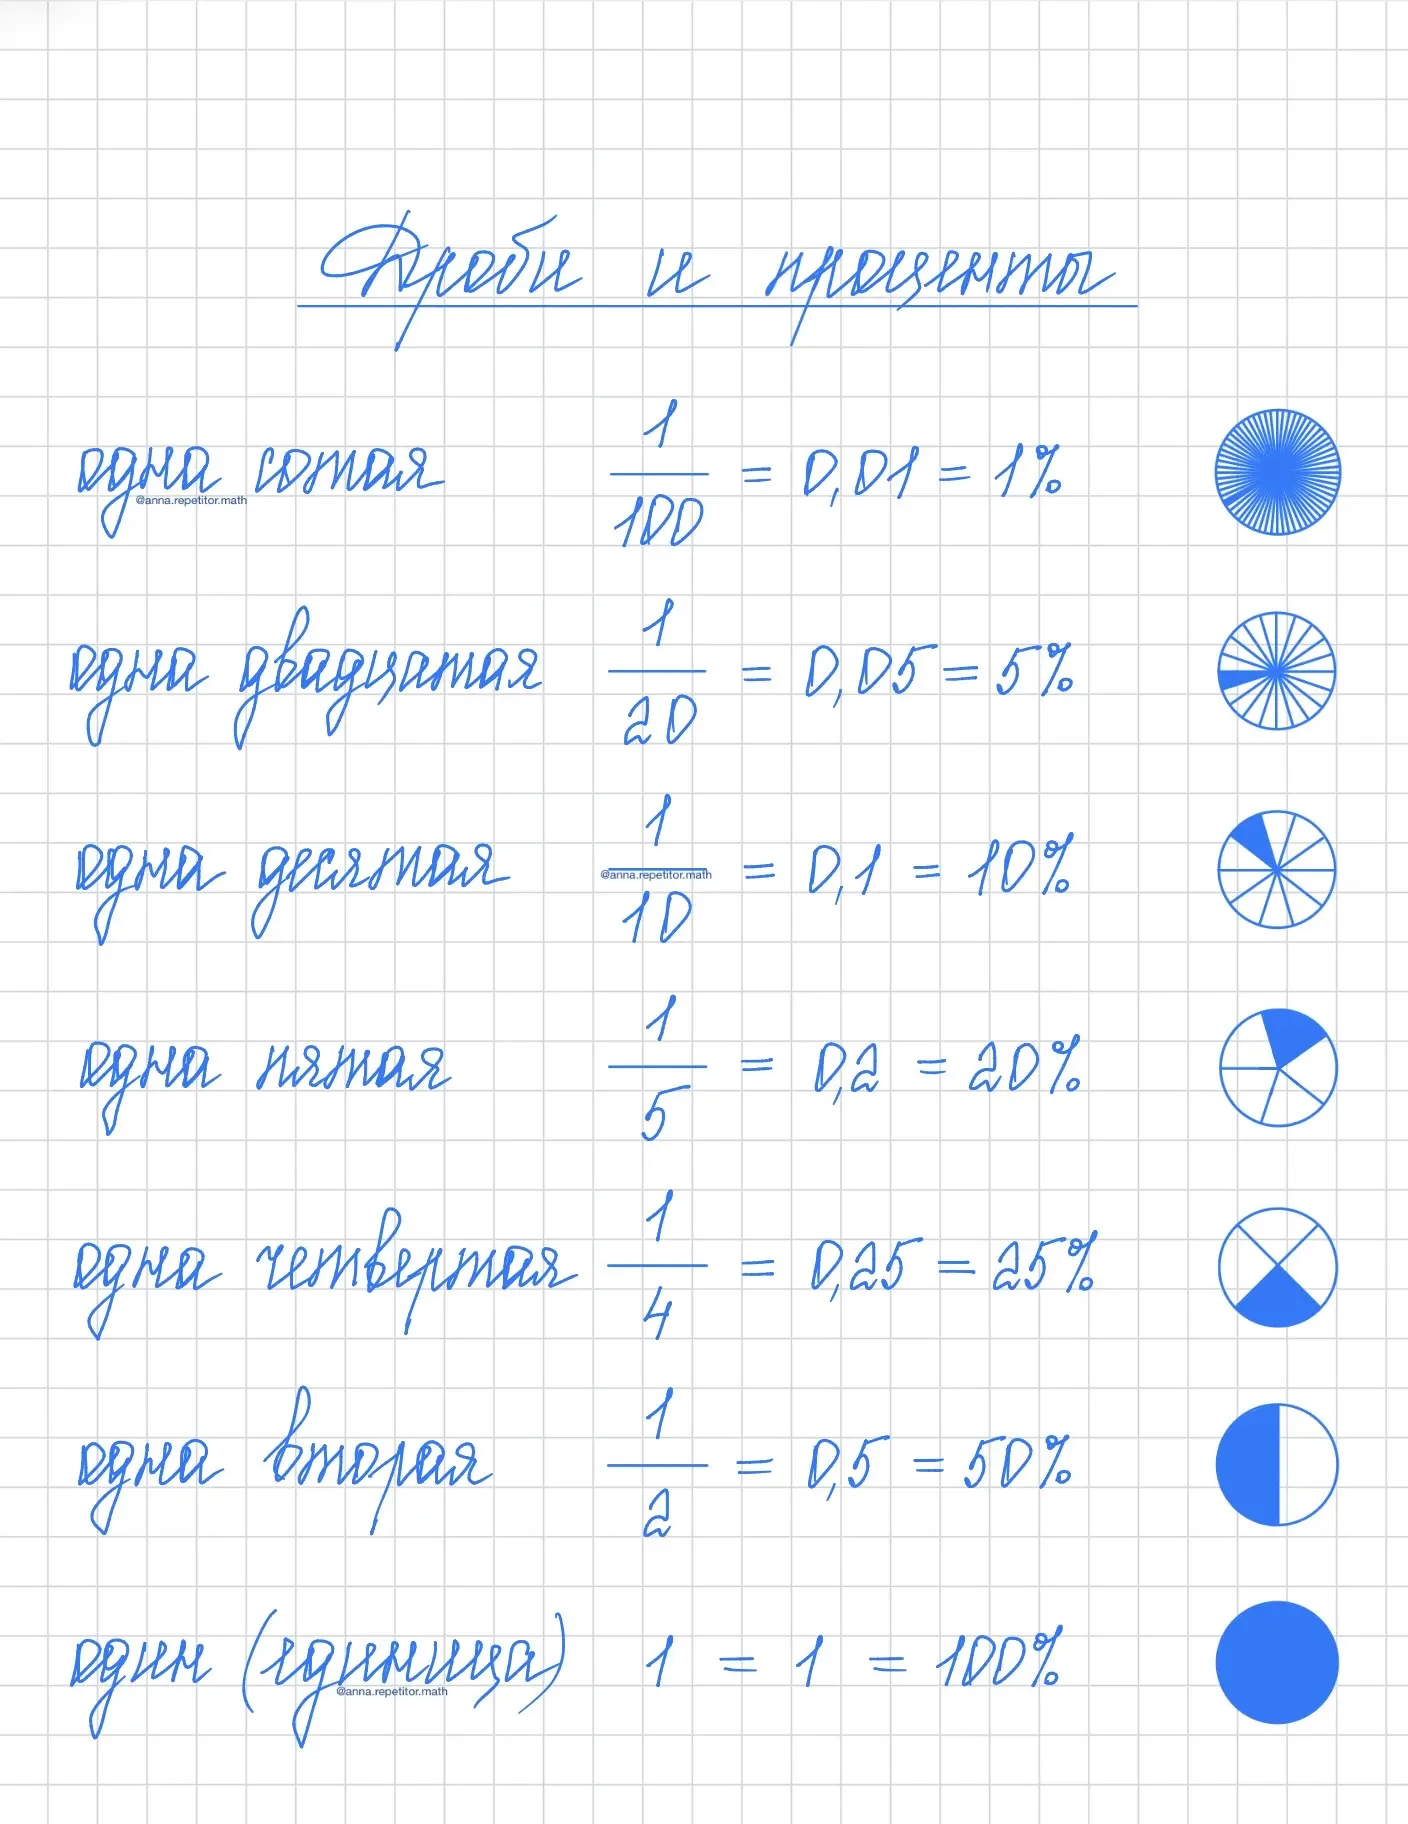 Дроби и проценты
одна сотая 1/100 = 0,01 = 1%
@anna.repetitor.math
одна двадцатая 1/20 = 0,05 = 5%
одна десятая 1/10 = 0,1 = 10%
@anna.repetitor.math
одна пятая 1/5 = 0,2 = 20%
одна четвертая 1/4 = 0,25 = 25%
одна вторая 1/2 = 0,5 = 50%
один (единица) 1 = 1 = 100%
@anna.repetitor.math